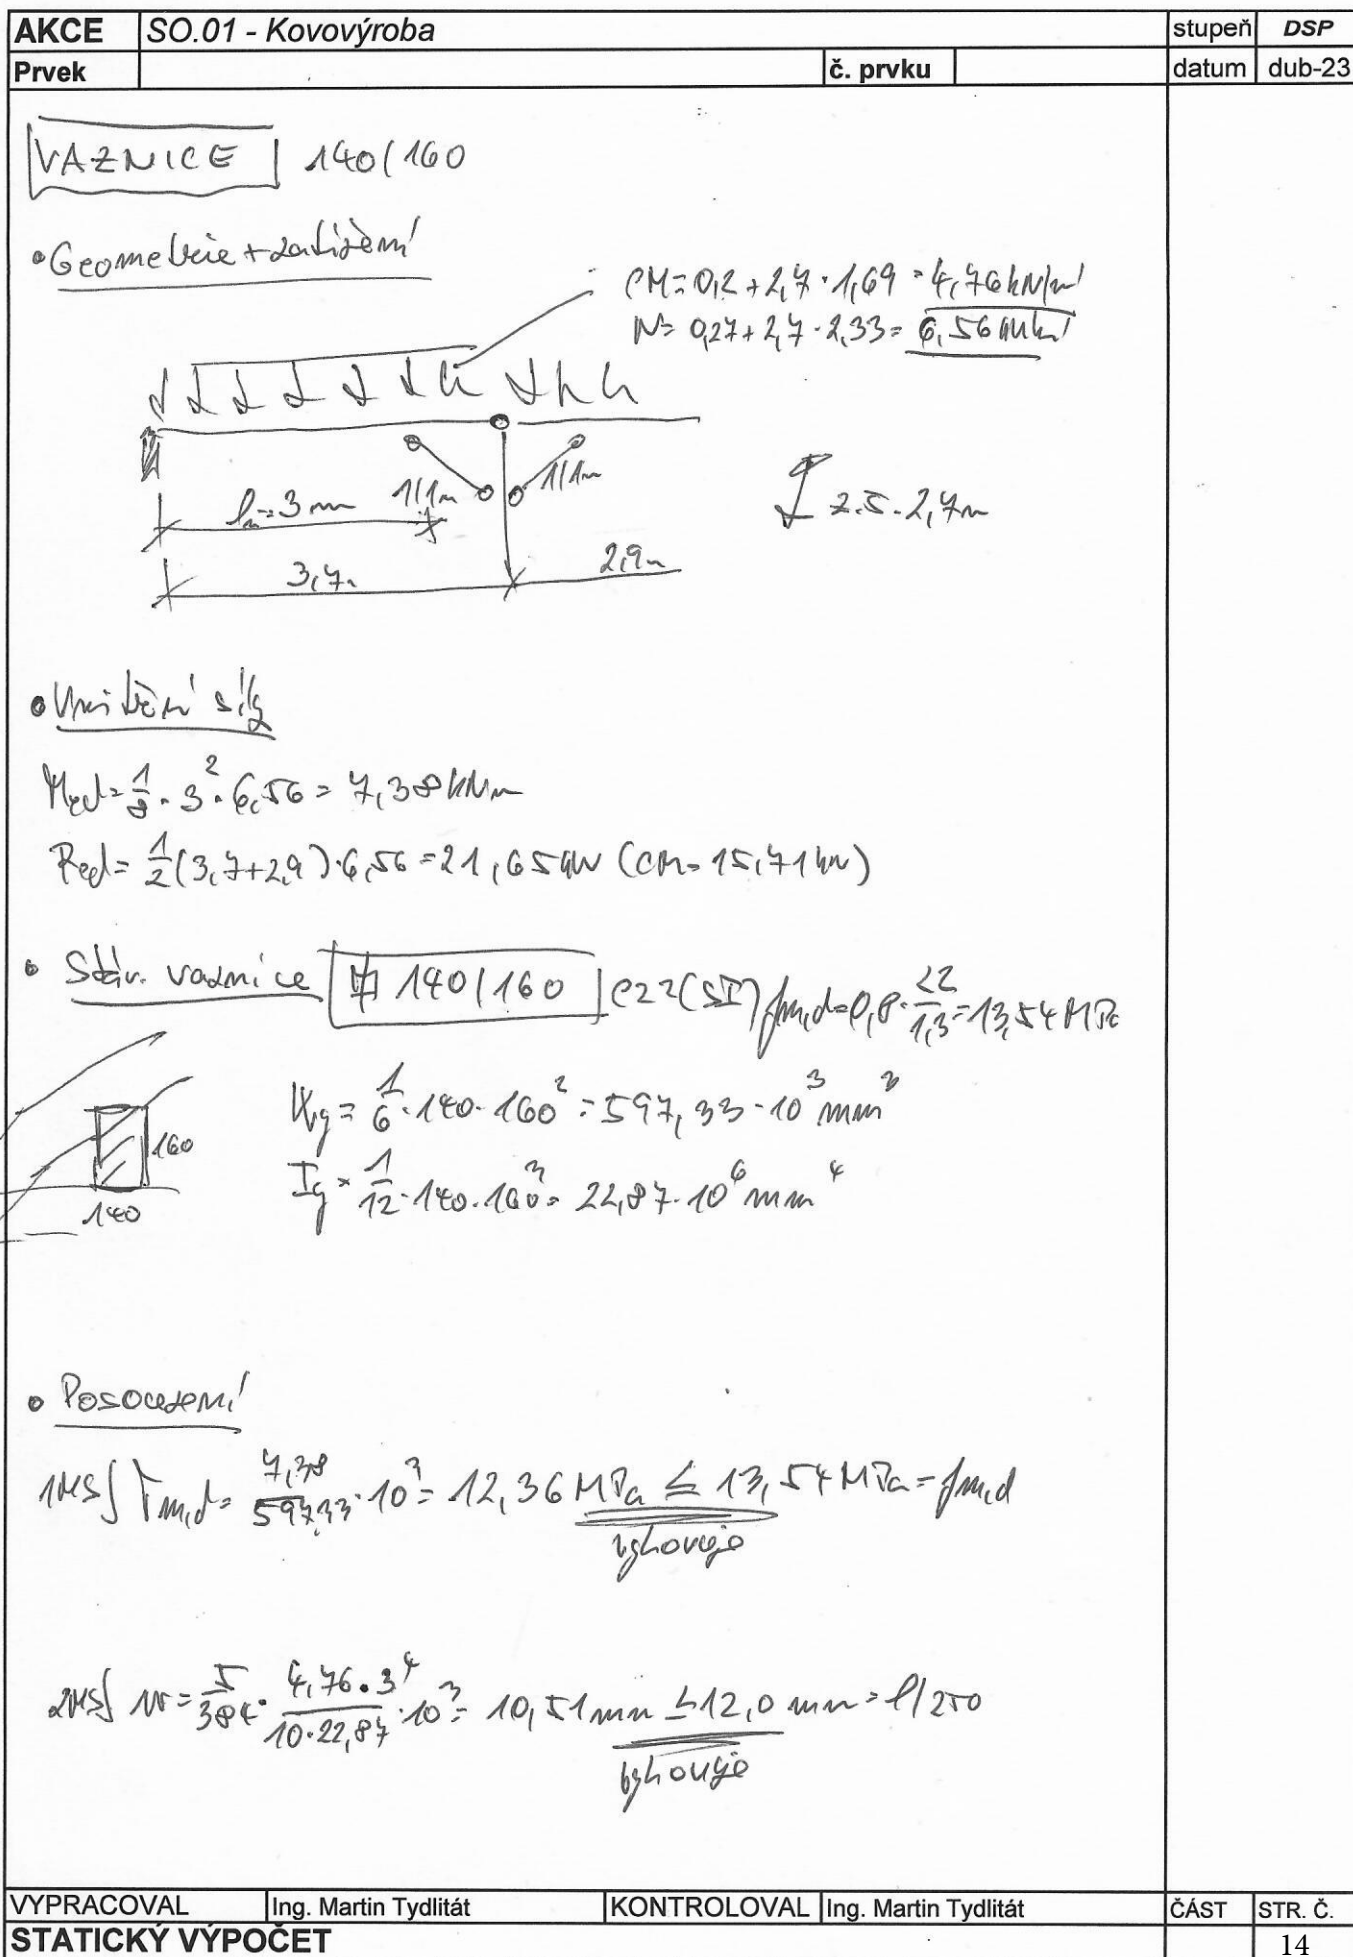 AKCE SO.01 - Kovovýroba stupeň DSP
Prvek č. prvku datum dub-23
VAZNICE 140/160
• Geometrie + zatížení
CH= 0,2 + 2,7 · 1,69 = 4,76 kN/m'
N= 0,27 + 2,7 · 2,33 = 6,56 kN/m'
l = 3 m 1/1m 1/1m
z.š. 2,7m
3,7m 2,9m
• Vnitřní síly
Med = 1/8 · 3² · 6,56 = 7,38 kNm
Red = 1/2 (3,7+2,9) · 6,56 = 21,65 kN (CH= 15,71 kN)
• Stáv. vaznice 140/160 C22 (SI) fm,d = 0,8 · 22/1,3 = 13,54 MPa
160
140
Wy = 1/6 · 140 · 160² = 597,33 · 10³ mm³
Iy = 1/12 · 140 · 160³ = 22,87 · 10⁶ mm⁴
• Posouzení
1MS∫ σm,d = 7,38/597,33 · 10³ = 12,36 MPa ≤ 13,54 MPa = fm,d
vyhovuje
2MS∫ w = 5/384 · 4,76 · 3⁴/10 · 22,87 · 10³ = 10,51 mm ≤ 12,0 mm = l/250
vyhovuje
VYPRACOVAL Ing. Martin Tydlitát KONTROLOVAL Ing. Martin Tydlitát ČÁST STR. Č.
STATICKÝ VÝPOČET 14